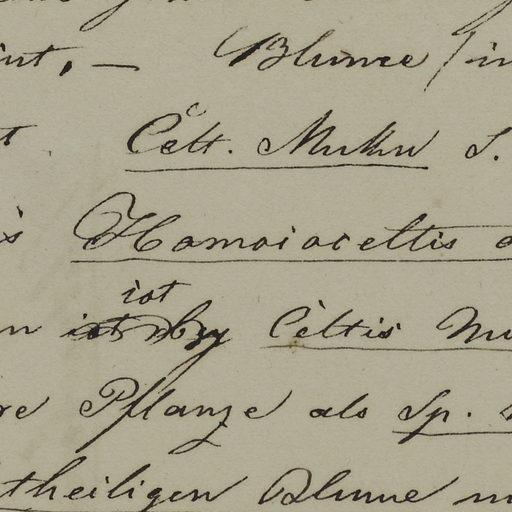 int, — Blume (in
t Celt. Muku S.
is Homoioceltis a
ist
n Celtis Mu
re Pflanze als Sp. n
theiligen Blume m